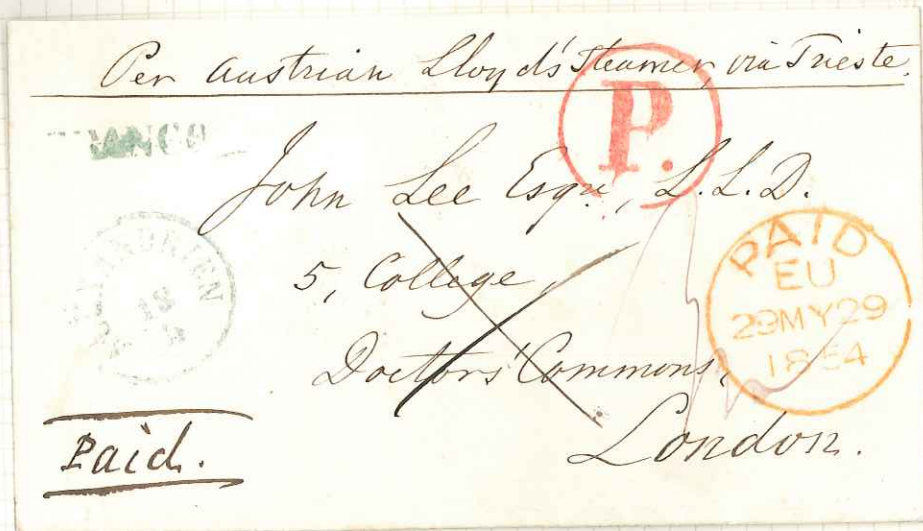 Per Austrian Lloyd's Steamer via Trieste.
FRANCO
P.
John Lee Esqre, L.L.D.
5, College,
Doctors' Commons,
London.
Paid.
PAID
EU
29MY29
1854